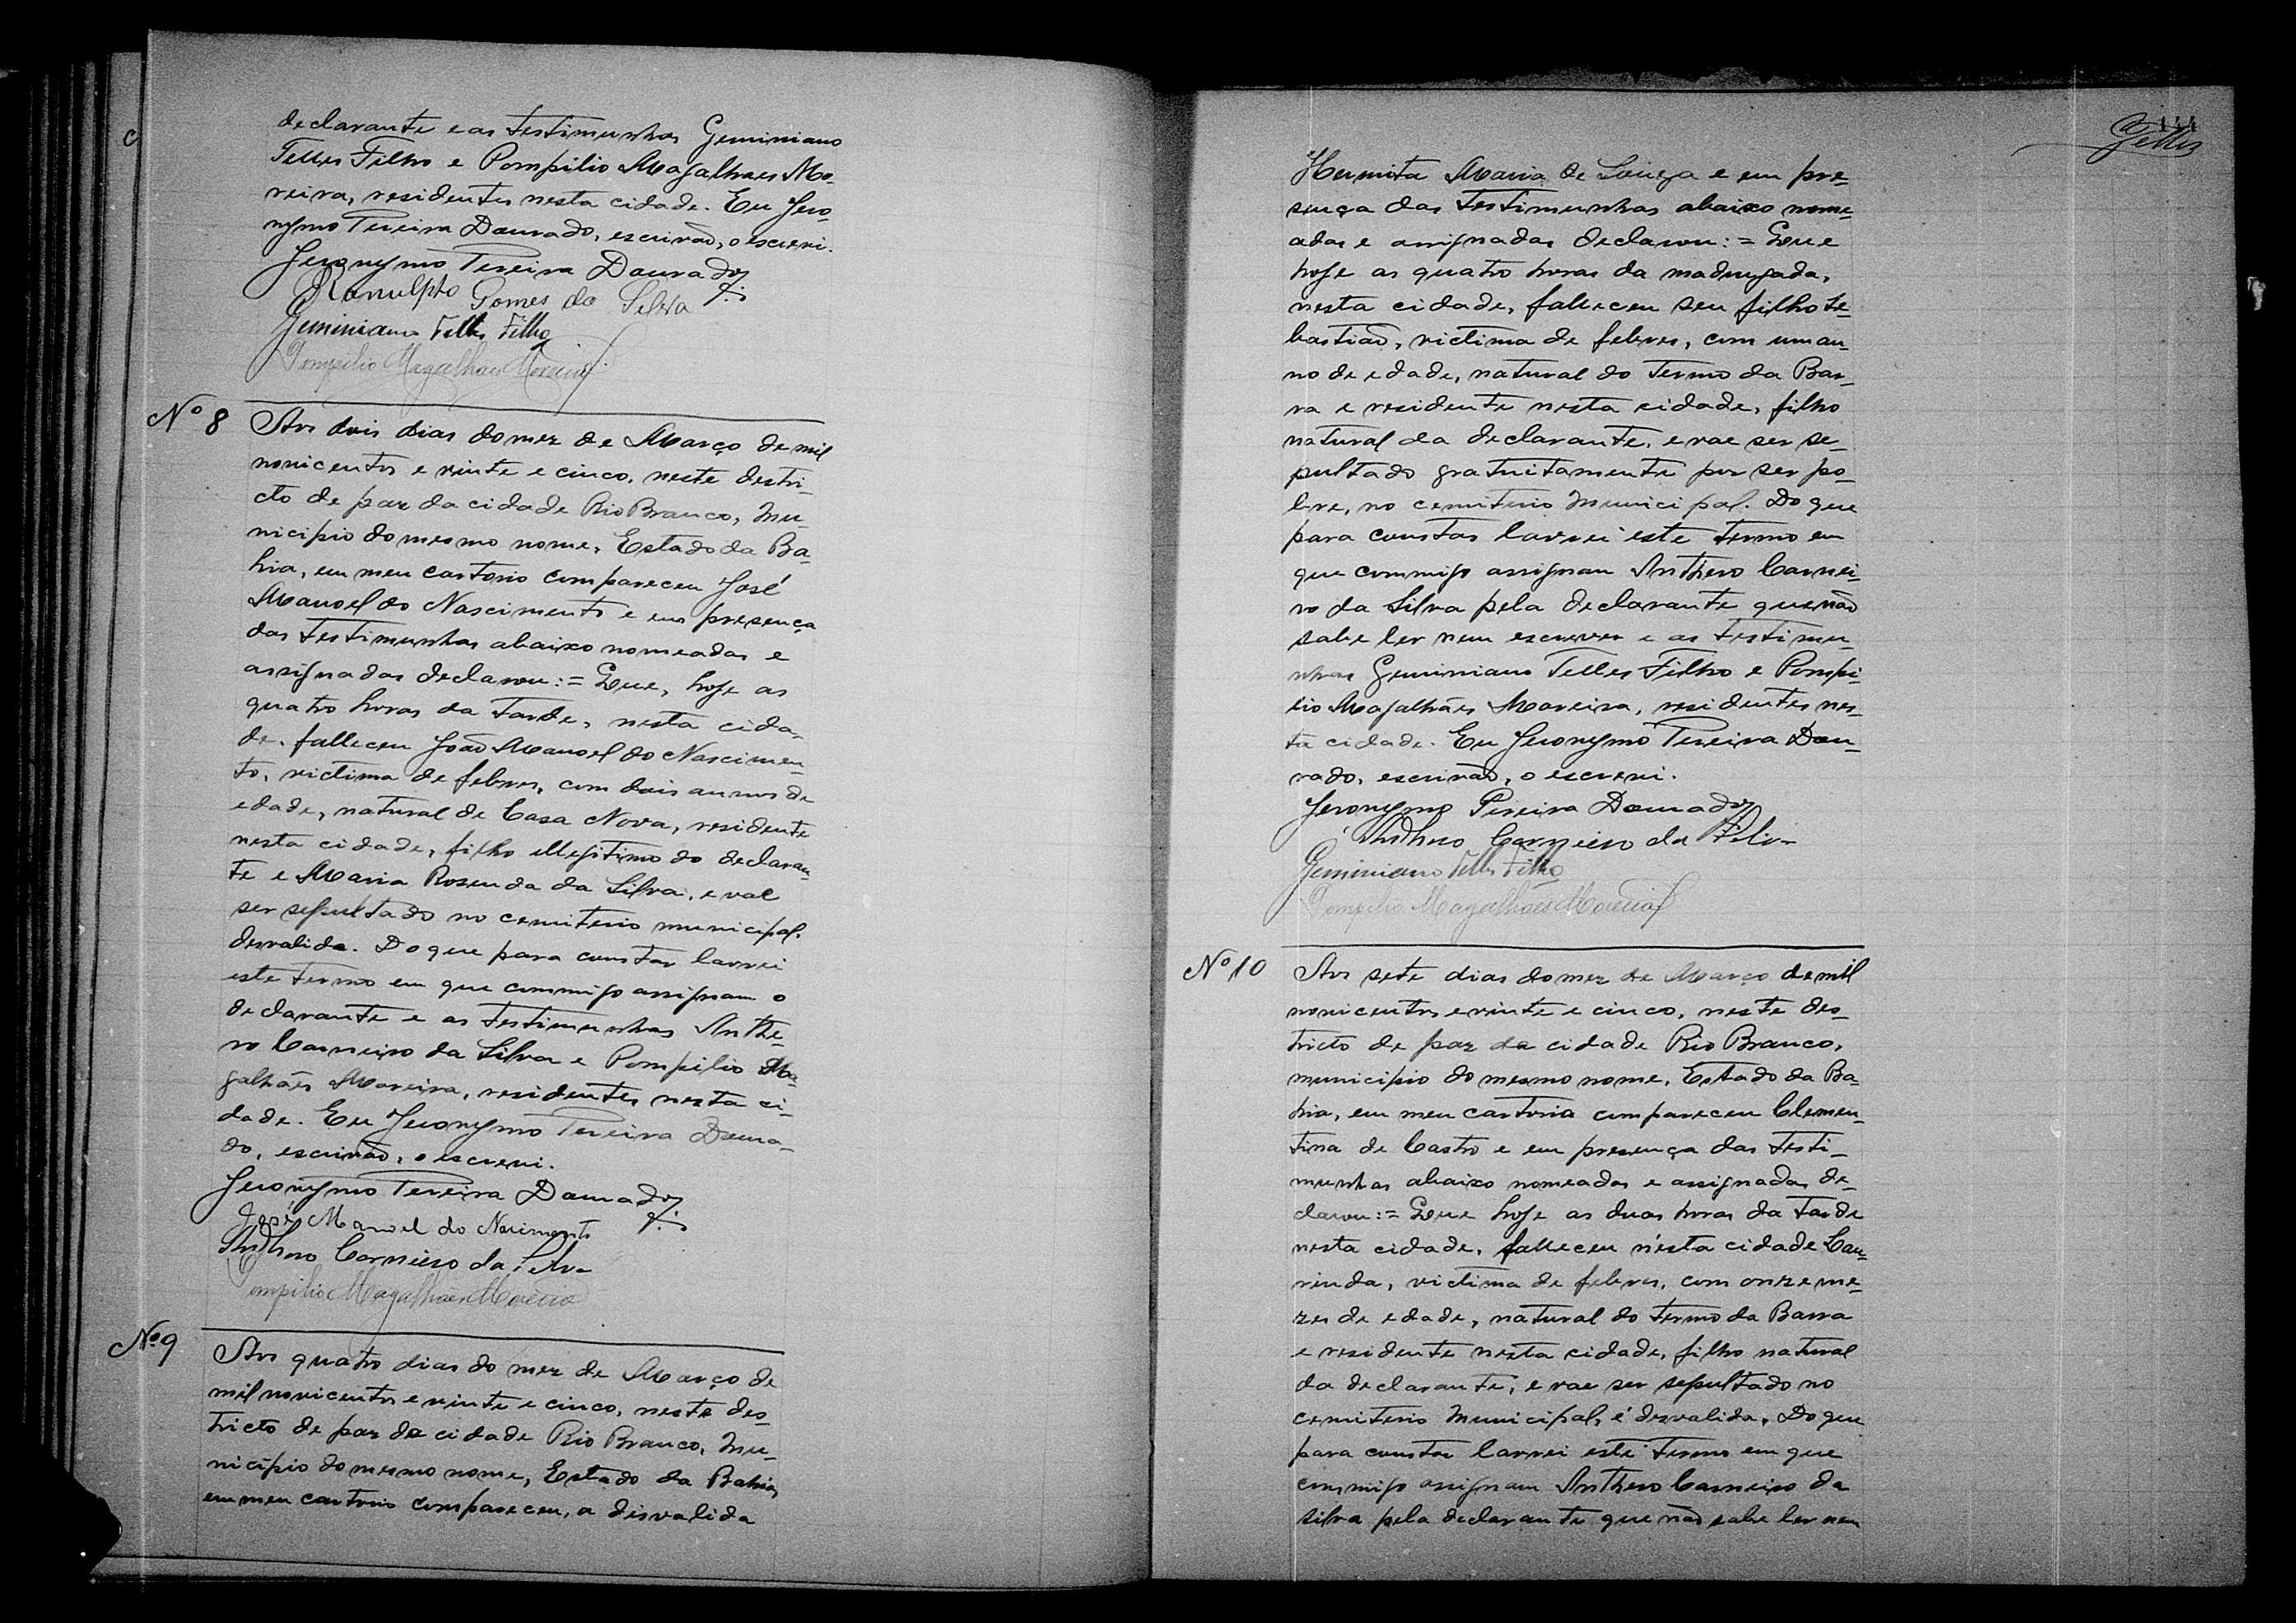 declarante e as testimunhas Geminiano
Telles Filho e Pompilio Magalhaes Mo-
reira, residentes nesta cidade. Eu Jero-
nymo Pereira Dourado, escrivão, o escrevi.
Jeronymo Pereira Dourado
Ranulpho Gomes da Silva
Geminiano Telles Filho
Pompilio Magalhaes Moreira
Nº 8 Aos dois dias do mez de Março de mil
novicentos e vinte e cinco, neste distri-
cto de paz da cidade Rio Branco, Mu-
nicipio do mesmo nome, Estado da Ba-
hia, em meu cartorio compareceu José
Manoel do Nascimento e em presença
das testimunhas abaixo nomeadas e
assignadas declarou:= Que, hoje as
quatro horas da tarde, nesta cida-
de, falleceu João Manoel do Nascimen-
to, victima de febres, com dois annos de
edade, natural de Casa Nova, residente
nesta cidade, filho illegitimo do declaran-
te e Maria Rosenda da Silva, e vai
ser sepultado no cemiterio municipal.
desvalida. Do que para constar lavrei
este termo em que commigo assignam o
declarante e as testimunhas Anthe-
ro Carneiro da Silva e Pompilio Ma-
galhães Moreira, residentes nesta ci-
dade. Eu Jeronymo Pereira Doura-
do, escrivão, o escrevi.
Jeronymo Pereira Dourado
José Manoel do Nacimento
Anthero Carneiro da Silva
Pompilio Magalhaes Moreira
Nº 9 Aos quatro dias do mez de Março de
mil novicentos e vinte e cinco, neste des-
tricto de paz da cidade Rio Branco, Mu-
nicipio do mesmo nome, Estado da Bahia,
em meu cartorio compareceu, a disvalida
144
Telles
Hermita Maria de Souza e em pre-
sença das testimunhas abaixo nome-
adas e assignadas declarou:= Que
hoje as quatro horas da madrugada,
nesta cidade, falleceu seu filho Se-
bastião, victima de febres, com um an-
no de edade, natural do termo da Bar-
ra e residente nesta cidade, filho
natural da declarante, e vae ser se-
pultado gratuitamente por ser po-
bre, no cemiterio Municipal. Do que
para constar lavrei este termo em
que commigo assignam Anthero Carnei-
ro da Silva pela declarante que não
sabe ler nem escrever e as testimu-
nhas Geminiano Telles Filho e Pompi-
lio Magalhães Moreira, residentes nes-
ta cidade. Eu Jeronymo Pereira Dou-
rado, escrivão, o escrevi.
Jeronymo Pereira Dourado
Anthero Carneiro da Silva
Geminiano Telles Filho
Pompilio Magalhães Moreira
Nº 10 Aos sete dias do mez de Março de mil
novicentos e vinte e cinco, neste des-
tricto de paz da cidade Rio Branco,
municipio do mesmo nome, Estado da Ba-
hia, em meu cartorio compareceu Clemen-
tina de Castro e em presença das testi-
munhas abaixo nomeadas e assignadas de-
clarou:= Que hoje as duas horas da tarde
nesta cidade, falleceu n'esta cidade Lau-
rinda, victima de febres, com onze me-
zes de edade, natural do termo da Barra
e residente nesta cidade, filho natural
da declarante, e vae ser sepultado no
cemiterio Municipal, é desvalida. Do que
para constar lavrei este termo em que
commigo assignam Anthero Carneiro da
silva pela declarante que não sabe ler nem